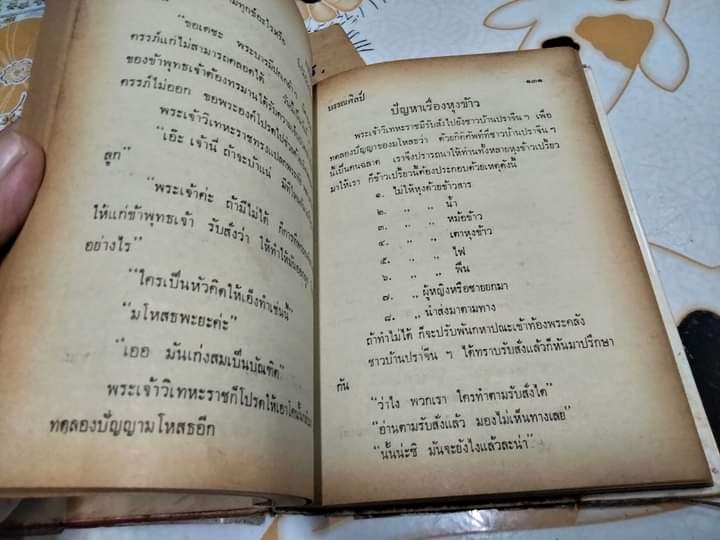 มทุกข์อะไรหรือ
"ขอเดชะ พระบารมีปกเกล้า ฯ
ครรภ์แก่ไม่สามารถคลอดได้
ของข้าพุทธเจ้าต้องทรมานได้รับความ
ครรภ์ไม่ออก ขอพระองค์โปรดให้
พระเจ้าวิเทหะราชทรงแปลก
"เอ๊ะ เจ้านี่ ถ้าจะบ้าแน่
ลูก"
"พระเจ้าค่ะ ถ้ามีไม่ได้
ให้แก่ข้าพุทธเจ้า รับสั่งว่า ให้ทำให้
อย่างไร"
"ใครเป็นหัวคิดให้เอ็งทำเช่นนี้"
"มโหสธพะยะค่ะ"
"เออ มันเก่งสมเป็นบัณฑิต"
พระเจ้าวิเทหะราชก็โปรดให้เอา
ทดลองปัญญามโหสธอีก
บรรณศิลป์
๑๓๑
ปัญหาเรื่องหุงข้าว
พระเจ้าวิเทหะราชมีรับสั่งไปยังชาวบ้านปราจีน ฯ เพื่อ
ทดลองปัญญาของมโหสธว่า ด้วยกิติศัพท์ที่ชาวบ้านปราจีน ฯ
นี้เป็นคนฉลาด เราจึงปรารถนาให้ท่านทั้งหลายหุงข้าวเปรี้ยว
มาให้เรา ก็ข้าวเปรี้ยวนี้ต้องประกอบด้วยเหตุดังนี้
๑. ไม่ให้หุงด้วยข้าวสาร
๒. " " น้ำ
๓. " " หม้อข้าว
๔. " " เตาหุงข้าว
๕. " " ไฟ
๖. " " ฟืน
๗. " ผู้หญิงหรือชายยกมา
๘. " นำส่งมาตามทาง
ถ้าทำไม่ได้ ก็จะปรับพันกหาปณะเข้าท้องพระคลัง
ชาวบ้านปราจีน ฯ ได้ทราบรับสั่งแล้วก็หันมาปรึกษา
กัน
"ว่าไง พวกเรา ใครทำตามรับสั่งได้"
"อ่านตามรับสั่งแล้ว มองไม่เห็นทางเลย"
"นั้นน่ะซิ มันจะยังไงแล้วละน่า"